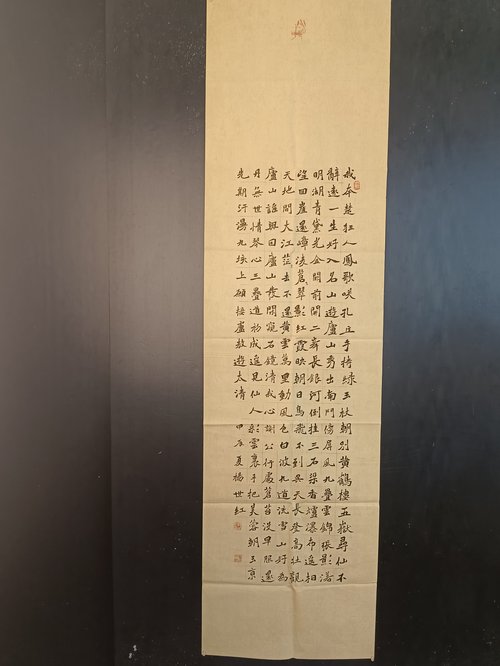 我本楚狂人鳳歌咲孔丘手持綠玉杖朝別黃鶴樓五嶽尋仙不
辭遠一生好入名山遊廬山秀出南斗傍屏風九疊雲錦張影落
明湖青黛光金闕前開二峯長銀河倒挂三石梁香爐瀑布遙相
望回崖遝嶂凌蒼々翠影紅霞映朝日鳥飛不到吳天長登高壯觀
天地間大江茫々去不還黃雲萬里動風色白波九道流雪山好為
廬山謠興因廬山發閒窺石鏡清我心謝公行處蒼苔沒早服還
丹無世情琴心三疊道初成遙見仙人彩雲裏手把芙蓉朝玉京
先期汗漫九垓上願接盧敖遊太清 甲辰夏楊世紅